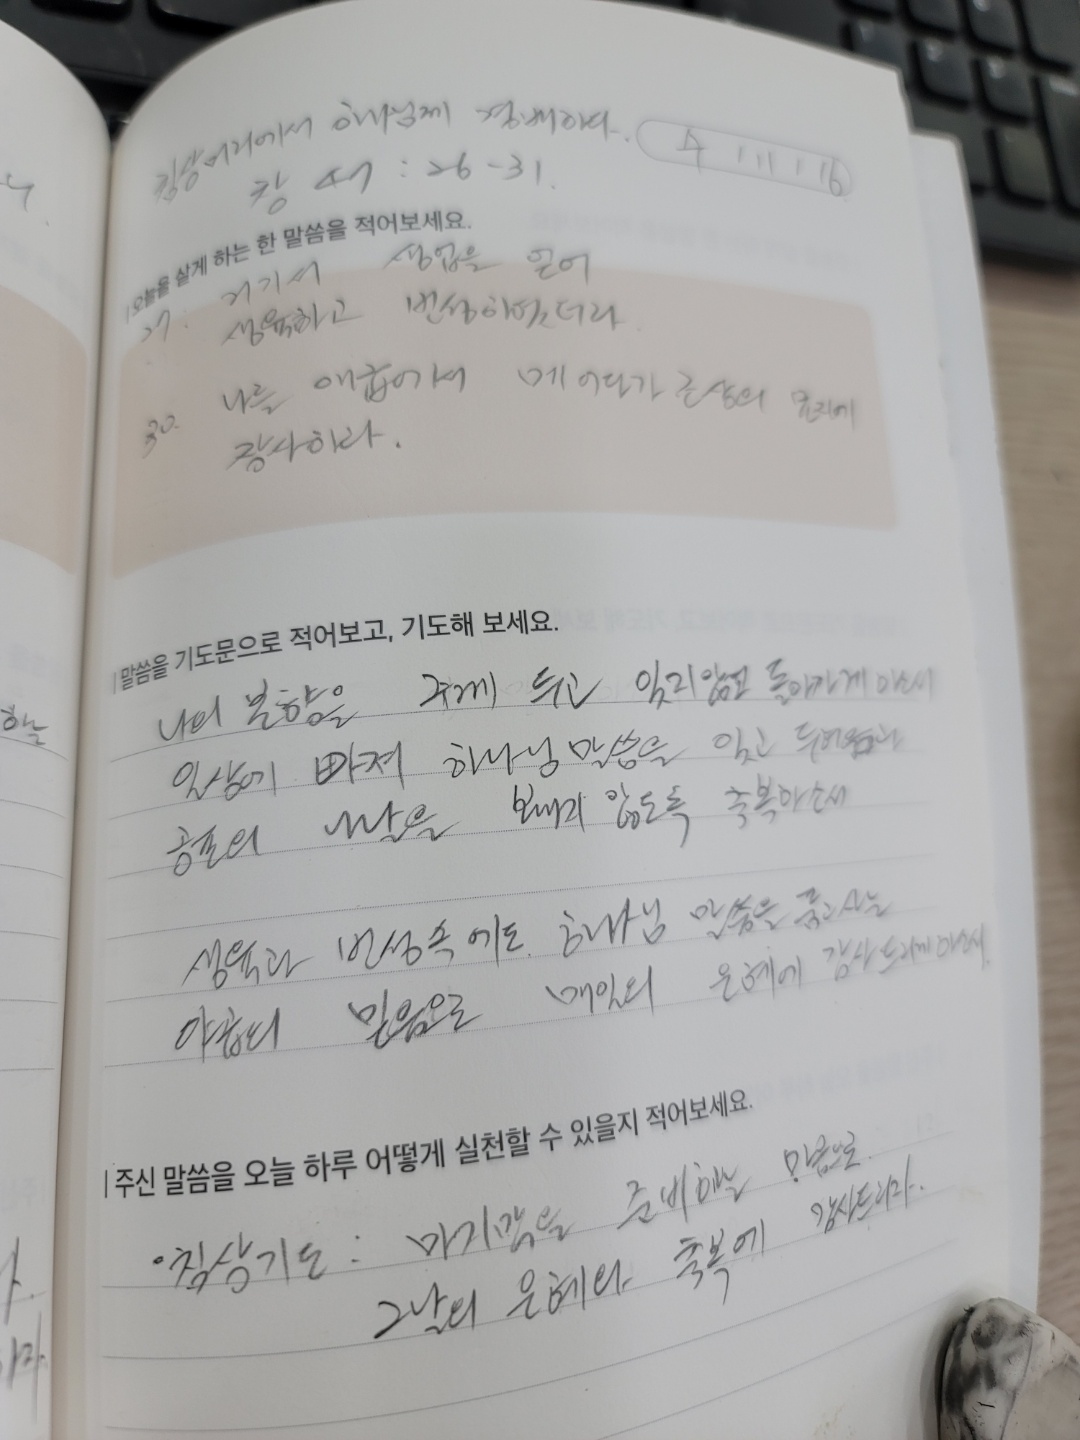 침상머리에서 하나님께 경배하다. 수 1 1 1 1 16
창 47 : 26 - 31.
| 오늘을 살게 하는 한 말씀을 적어보세요.
27. 거기서 생업을 얻어
생육하고 번성하였더라
30. 나를 애굽에서 메어다가 조상의 묘지에
장사하라.
| 말씀을 기도문으로 적어보고, 기도해 보세요.
나의 본향을 주께 두고 잊지않고 돌아가게 하소서
일상에 빠져 하나님 말씀을 잊고 두려움과
공포의 나날을 보내지 않도록 축복하소서
생육과 번성속에도 하나님 말씀을 품고사는
야곱의 믿음으로 매일의 은혜에 감사드리게 하소서.
| 주신 말씀을 오늘 하루 어떻게 실천할 수 있을지 적어보세요.
• 침상기도 : 마지막을 준비하는 마음으로
그날의 은혜와 축복에 감사드리자.
하늘